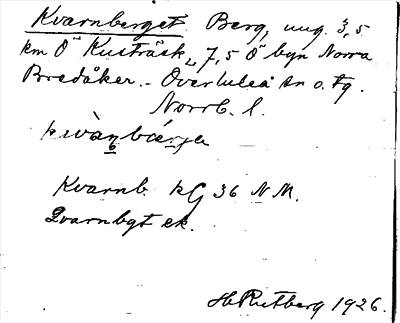 Kvarnberget. Berg, ung. 3,5
km Ö Kusträsk, 7,5 Ö byn Norra
Bredåker. - Överluleå sn o. tg.
Norrb. l.
Kvarnb. kG 36 N M.
Qvarnbgt ek.
H Rutberg 1926.